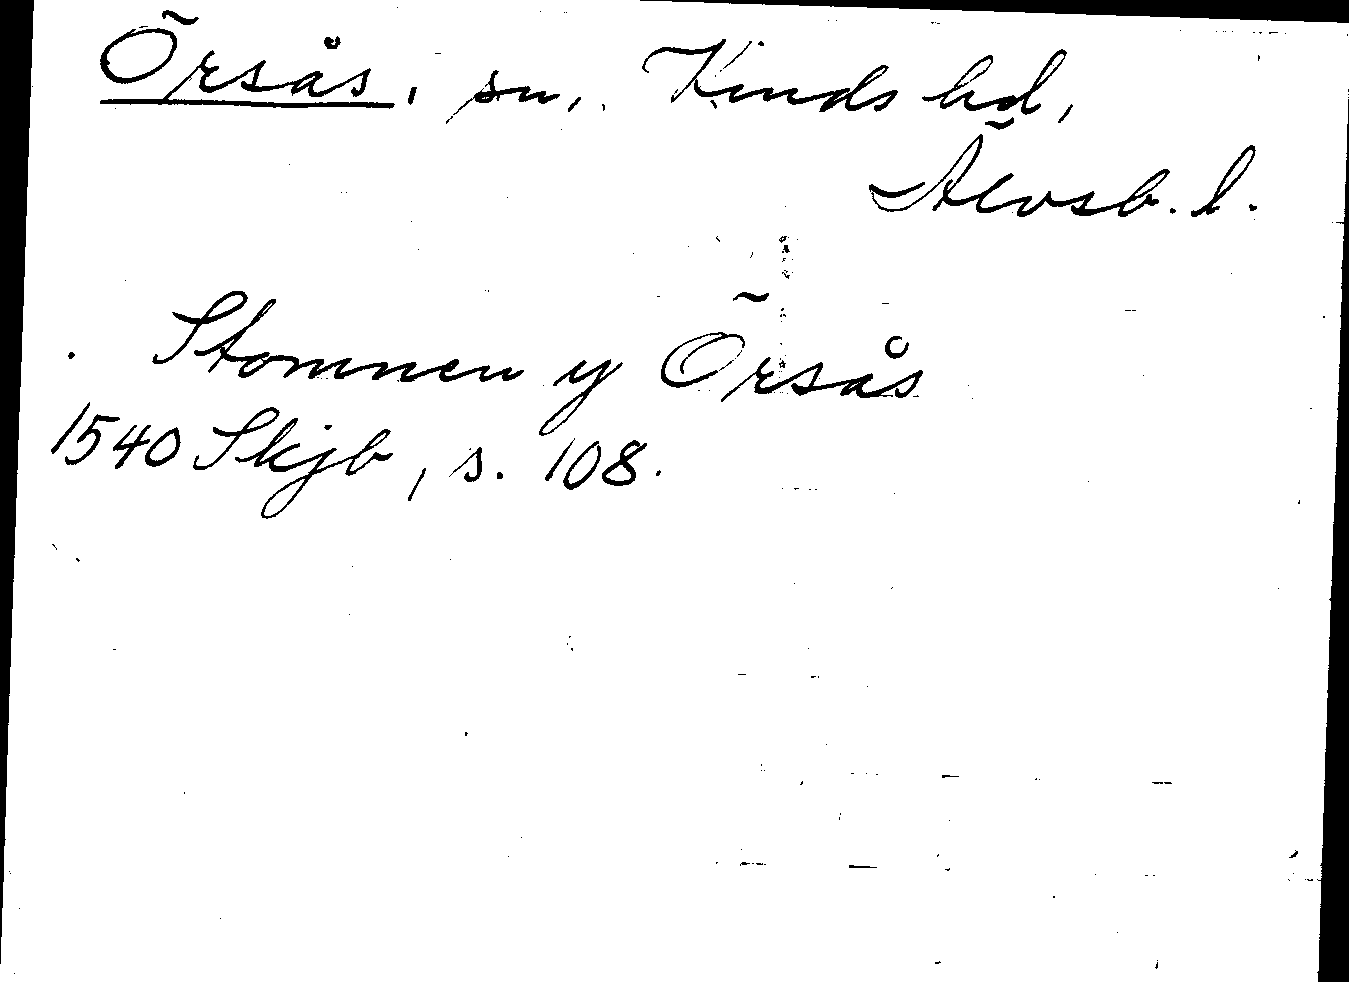 Örsås, sn, Kinds hd,
Älvsb. l.
Stomnen y Örsås
1540 Skjb, s. 108.